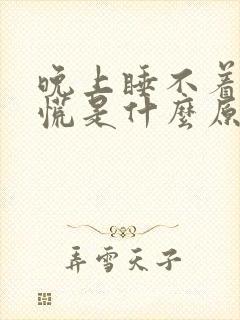 晚上睡不着
慌是什麼原
弄雪天子